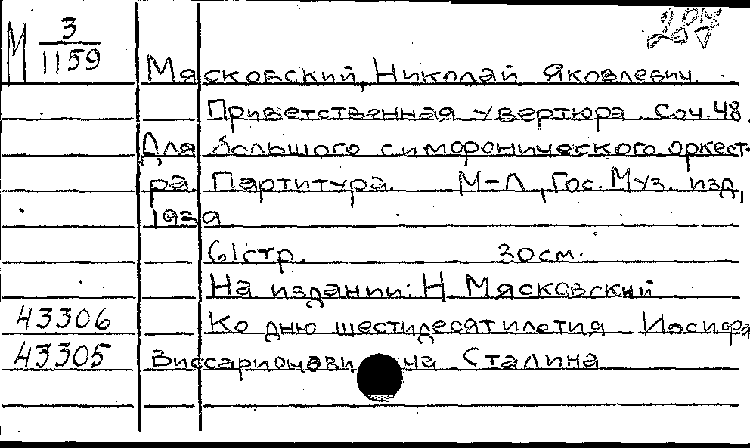 287
М 3/1159
Мясковский, Николай Яковлевич.
Приветственная увертюра. Соч. 48.
Для большого симфонического оркест-
ра. Партитура. М-Л, Гос. Муз. изд,
1939
61стр. 30см.
На издании: Н. Мясковский
43306 Ко дню шестидесятилетия Иосифа
43305 Виссарионови на Сталина